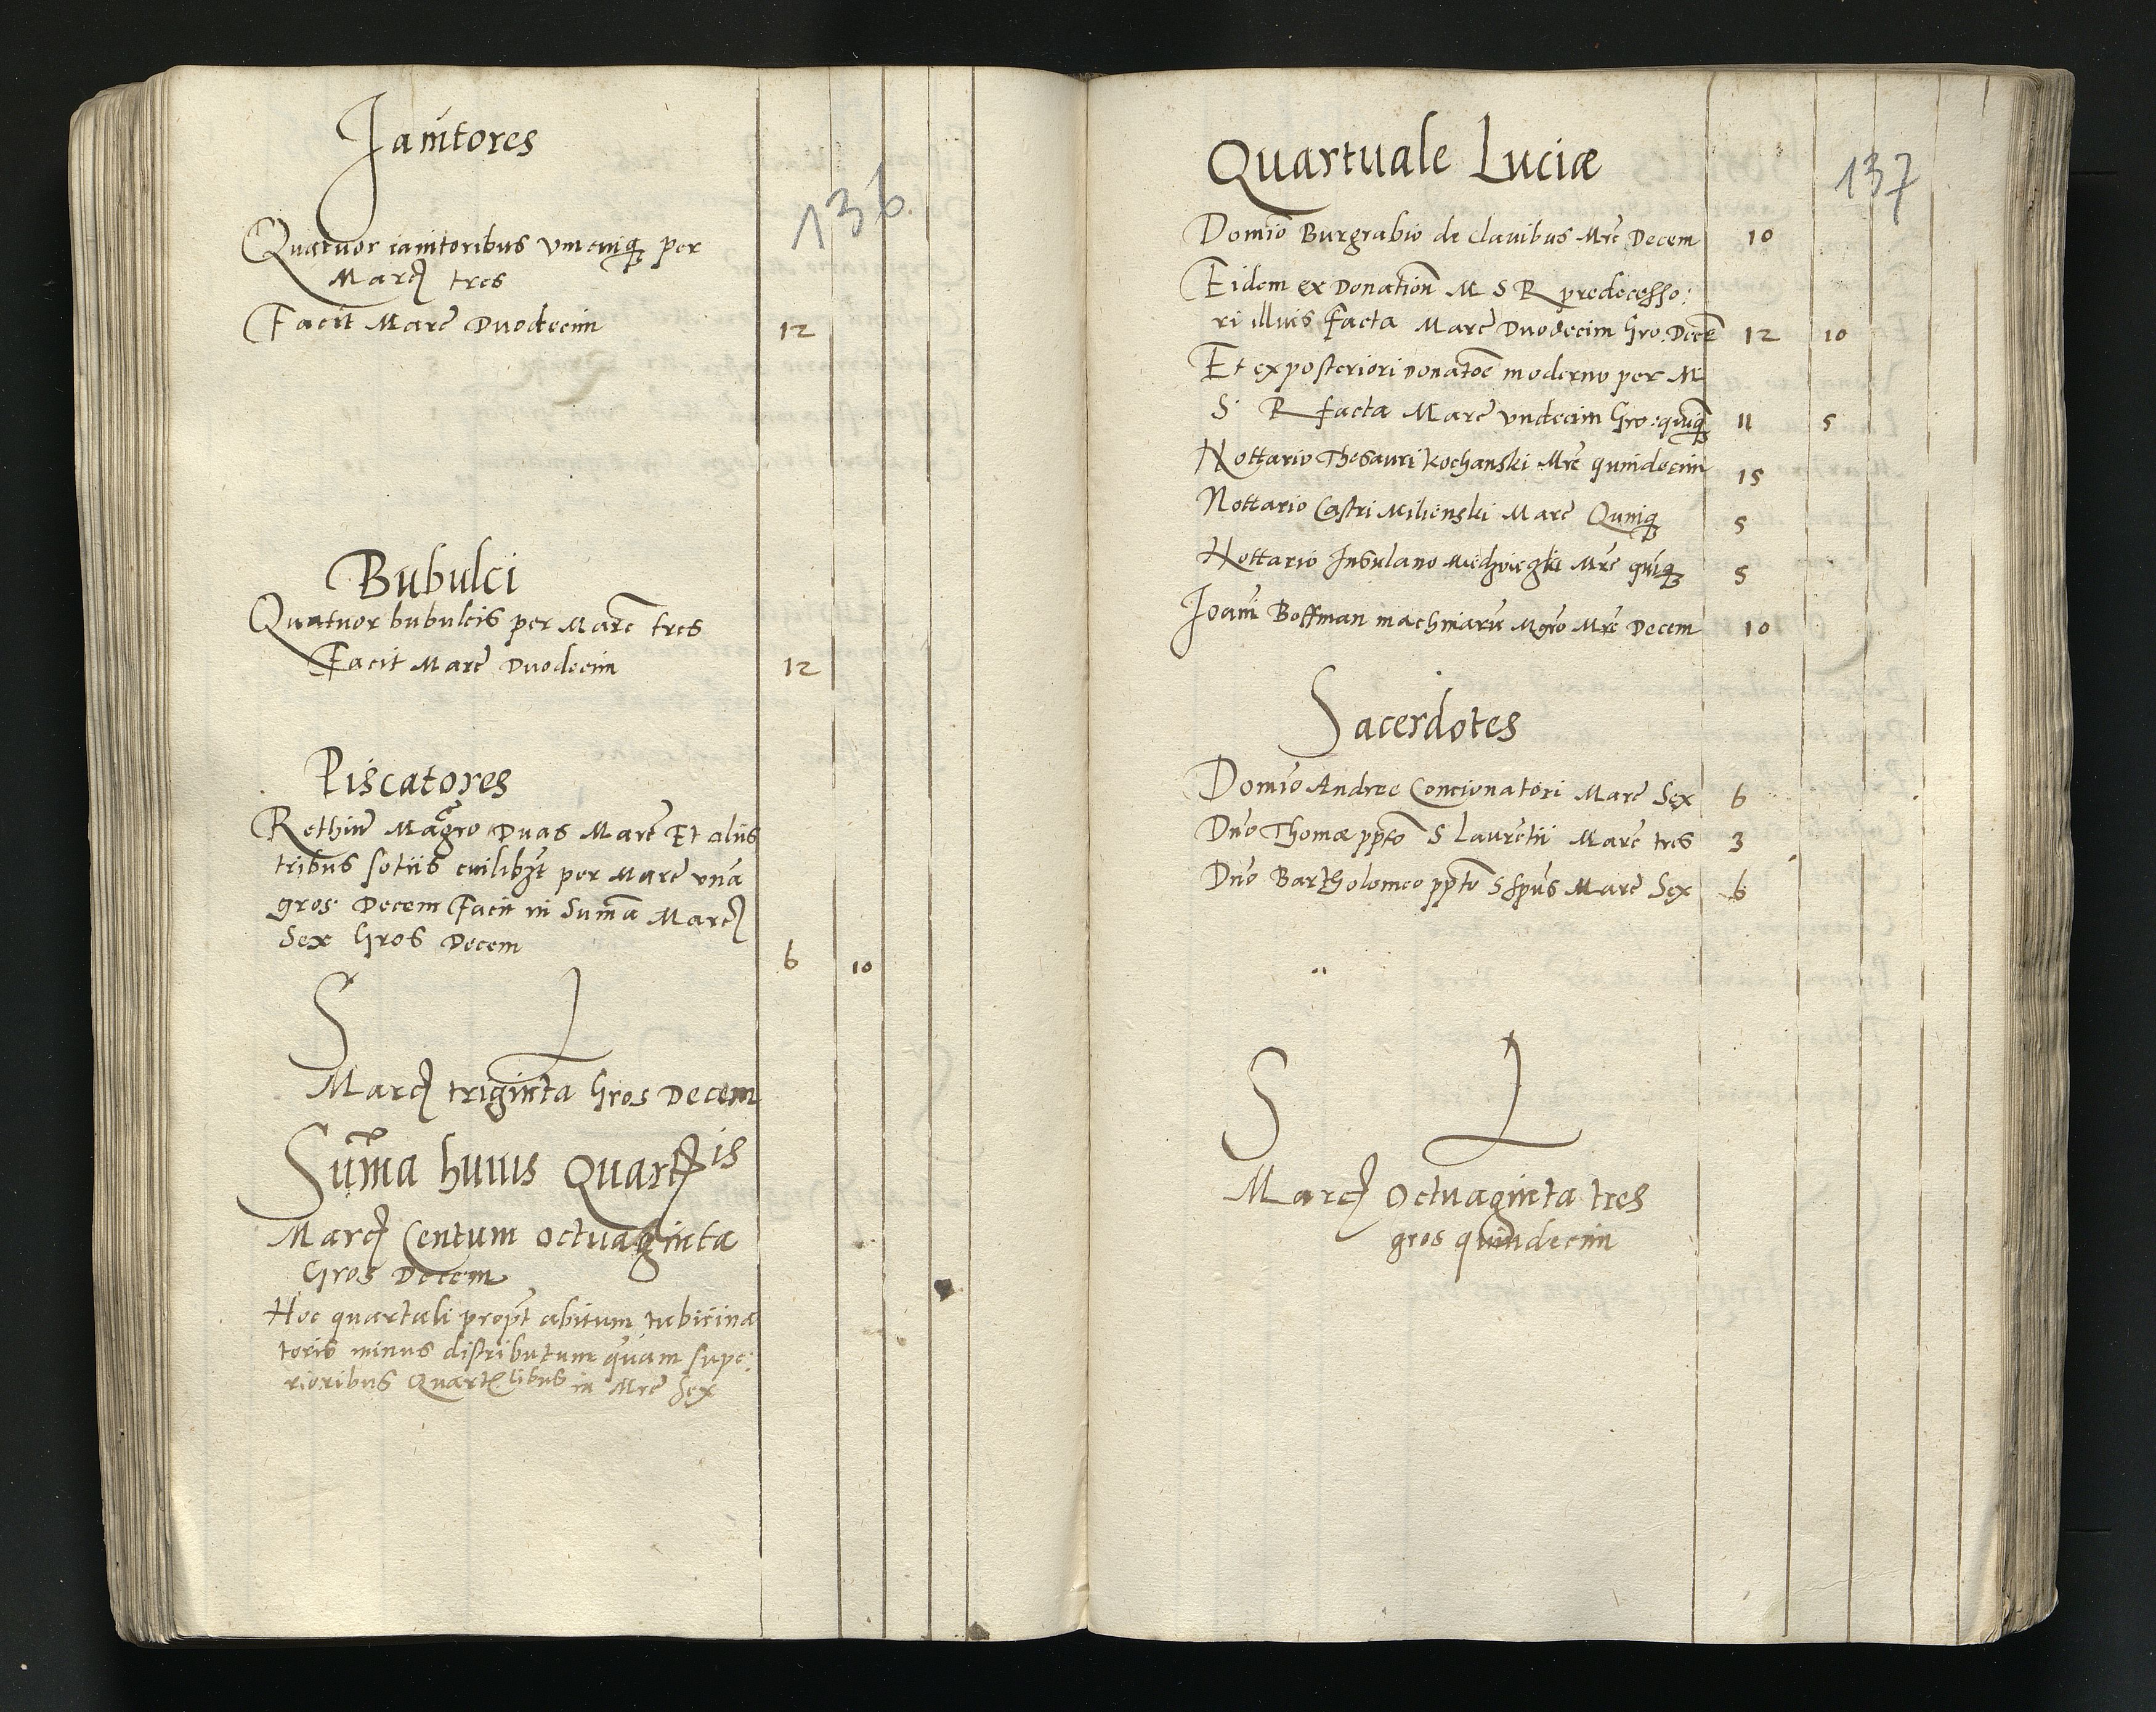 136
Janitores
Quatuor ianitoribus vnicuiq per
Marc tres
Facit Marc Duodecim 12
Bubulci
Quatuor bubulcis per Marc tres
Facit Marc Duodecim 12
Piscatores
Rethiu Magro Duas Marc Et aliis
tribus sotiis cuilibet per Marc vna
gros Decem Facit in Suma Marc
Sex Gros Decem 6 10
S L
Marc triginta Gros Decem
Suma huius Quartlis
Marc Centum octuaginta
Gros Decem
Hoc quartali propt abitum tubicina
toris minus distributum quam supe:
rioribus Quartlibus in Mrc Sex
137
Quartuale Luciæ
Domio Burgrabio de Clauibus Mrc Decem 10
Eidem ex Donation M S R predecesso:
ri illius facta Marc Duodecim Gro: Dece 12 10
Et ex posteriori donatoe moderno per M
S R facta Marc vndecim Gro: quiq 11 5
Nottario Thesauri Kochanski Mrc quindecim 15
Nottario Castri Milienski Marc Quinq 5
Nottario Insulano Miedzwiegki Mrc quiq 5
Joani Boffman machinaru Mgro Mrc Decem 10
Sacerdotes
Domio Andree Concionatori Marc Sex 6
Dno Thomæ ppto S Lauretii Marc tres 3
Dno Bartholomeo ppto S Spus Marc Sex 6
S L
Marc Octuaginta tres
gros quindecim